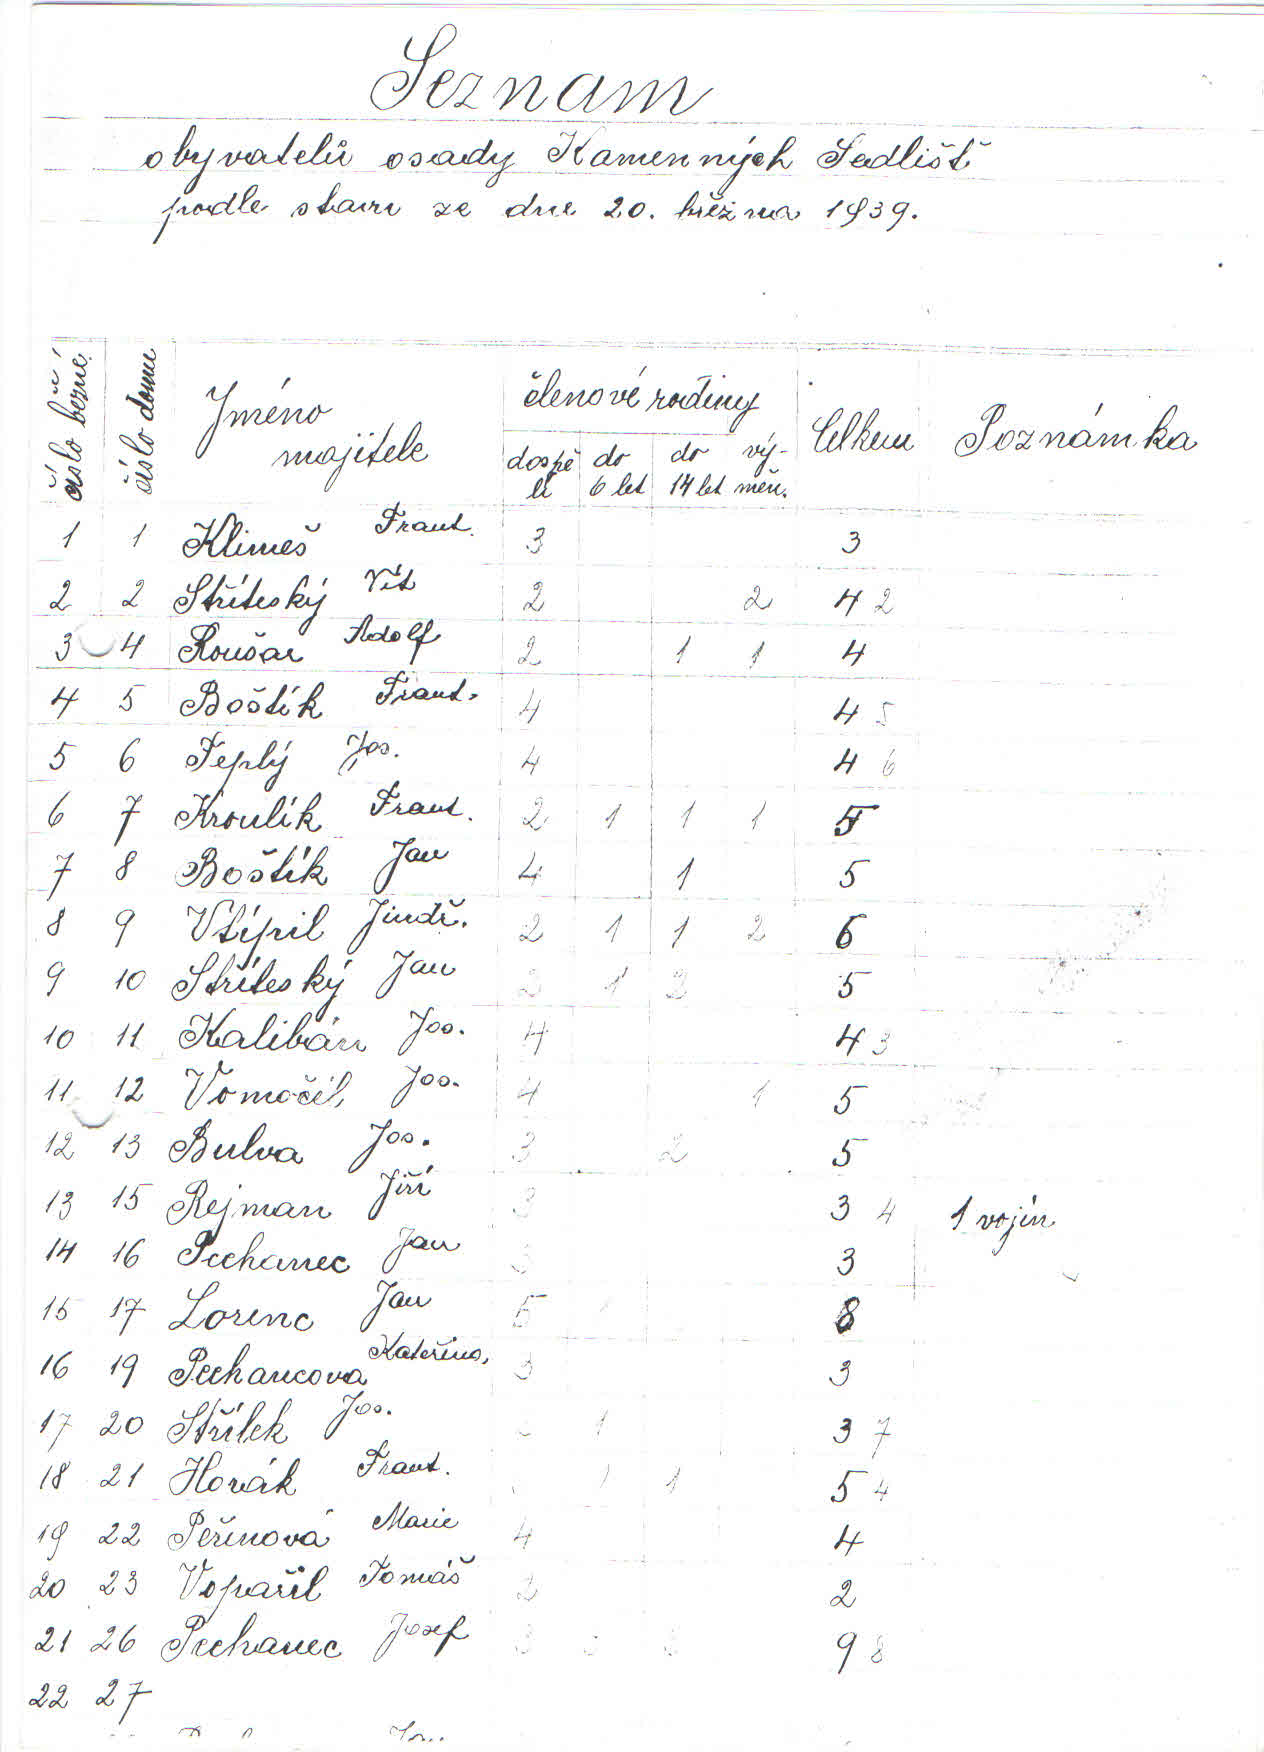 Seznam
obyvatelů osady Kamenných Sedlišť
podle stavu ze dne 20. března 1939.
číslo běžné číslo domu Jméno majitele členové rodiny Celkem Poznámka
dospělí do 6 let do 14 let výměn.
1 1 Klimeš Frant. 3 3
2 2 Stříteský Vít 2 2 4 2
3 4 Roušar Adolf 2 1 1 4
4 5 Boštík Frant. 4 4 5
5 6 Teplý Jos. 4 4 6
6 7 Kroulík Frant. 2 1 1 1 5
7 8 Boštík Jan 4 1 5
8 9 Vtípil Jindř. 2 1 1 2 6
9 10 Stříteský Jan 2 1 2 5
10 11 Kalibán Jos. 4 4 3
11 12 Vomočil Jos. 4 1 5
12 13 Bulva Jos. 3 2 5
13 15 Rejman Jiří 3 3 4 1 vojín
14 16 Pechanec Jan 3 3
15 17 Lorenc Jan 5 8
16 19 Pechancova Kateřina, 3 3
17 20 Střílek Jos. 1 3 7
18 21 Horák Frant. 1 1 5 4
19 22 Peřinová Marie 4 4
20 23 Vopařil Tomáš 2 2
21 26 Pechanec Josef 3 9 8
22 27